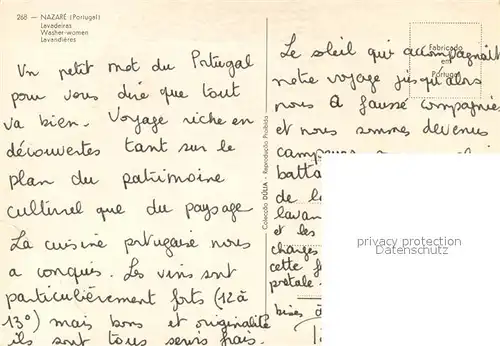 268 — NAZARÉ (Portugal)
Lavadeiras
Washer-women
Lavandières
Un petit mot du Portugal
pour vous dire que tout
va bien. Voyage riche en
découvertes tant sur le
plan du patrimoine
culturel que du paysage
La cuisine portugaise nous
a conquis. Les vins sont
particulièrement forts (12 à
13°) mais bons et originalité
ils sont tous servis frais.
Colecção DÚLIA - Reprodução Proibida
Fabricado
em
Portugal
Le soleil qui accompagnait
notre voyage jusqu'alors
nous a faussé compagnie
et nous sommes devenus
batta
de l
lavan
et les
charges
cette f
postale.
bises à
privacy protection
Datenschutz